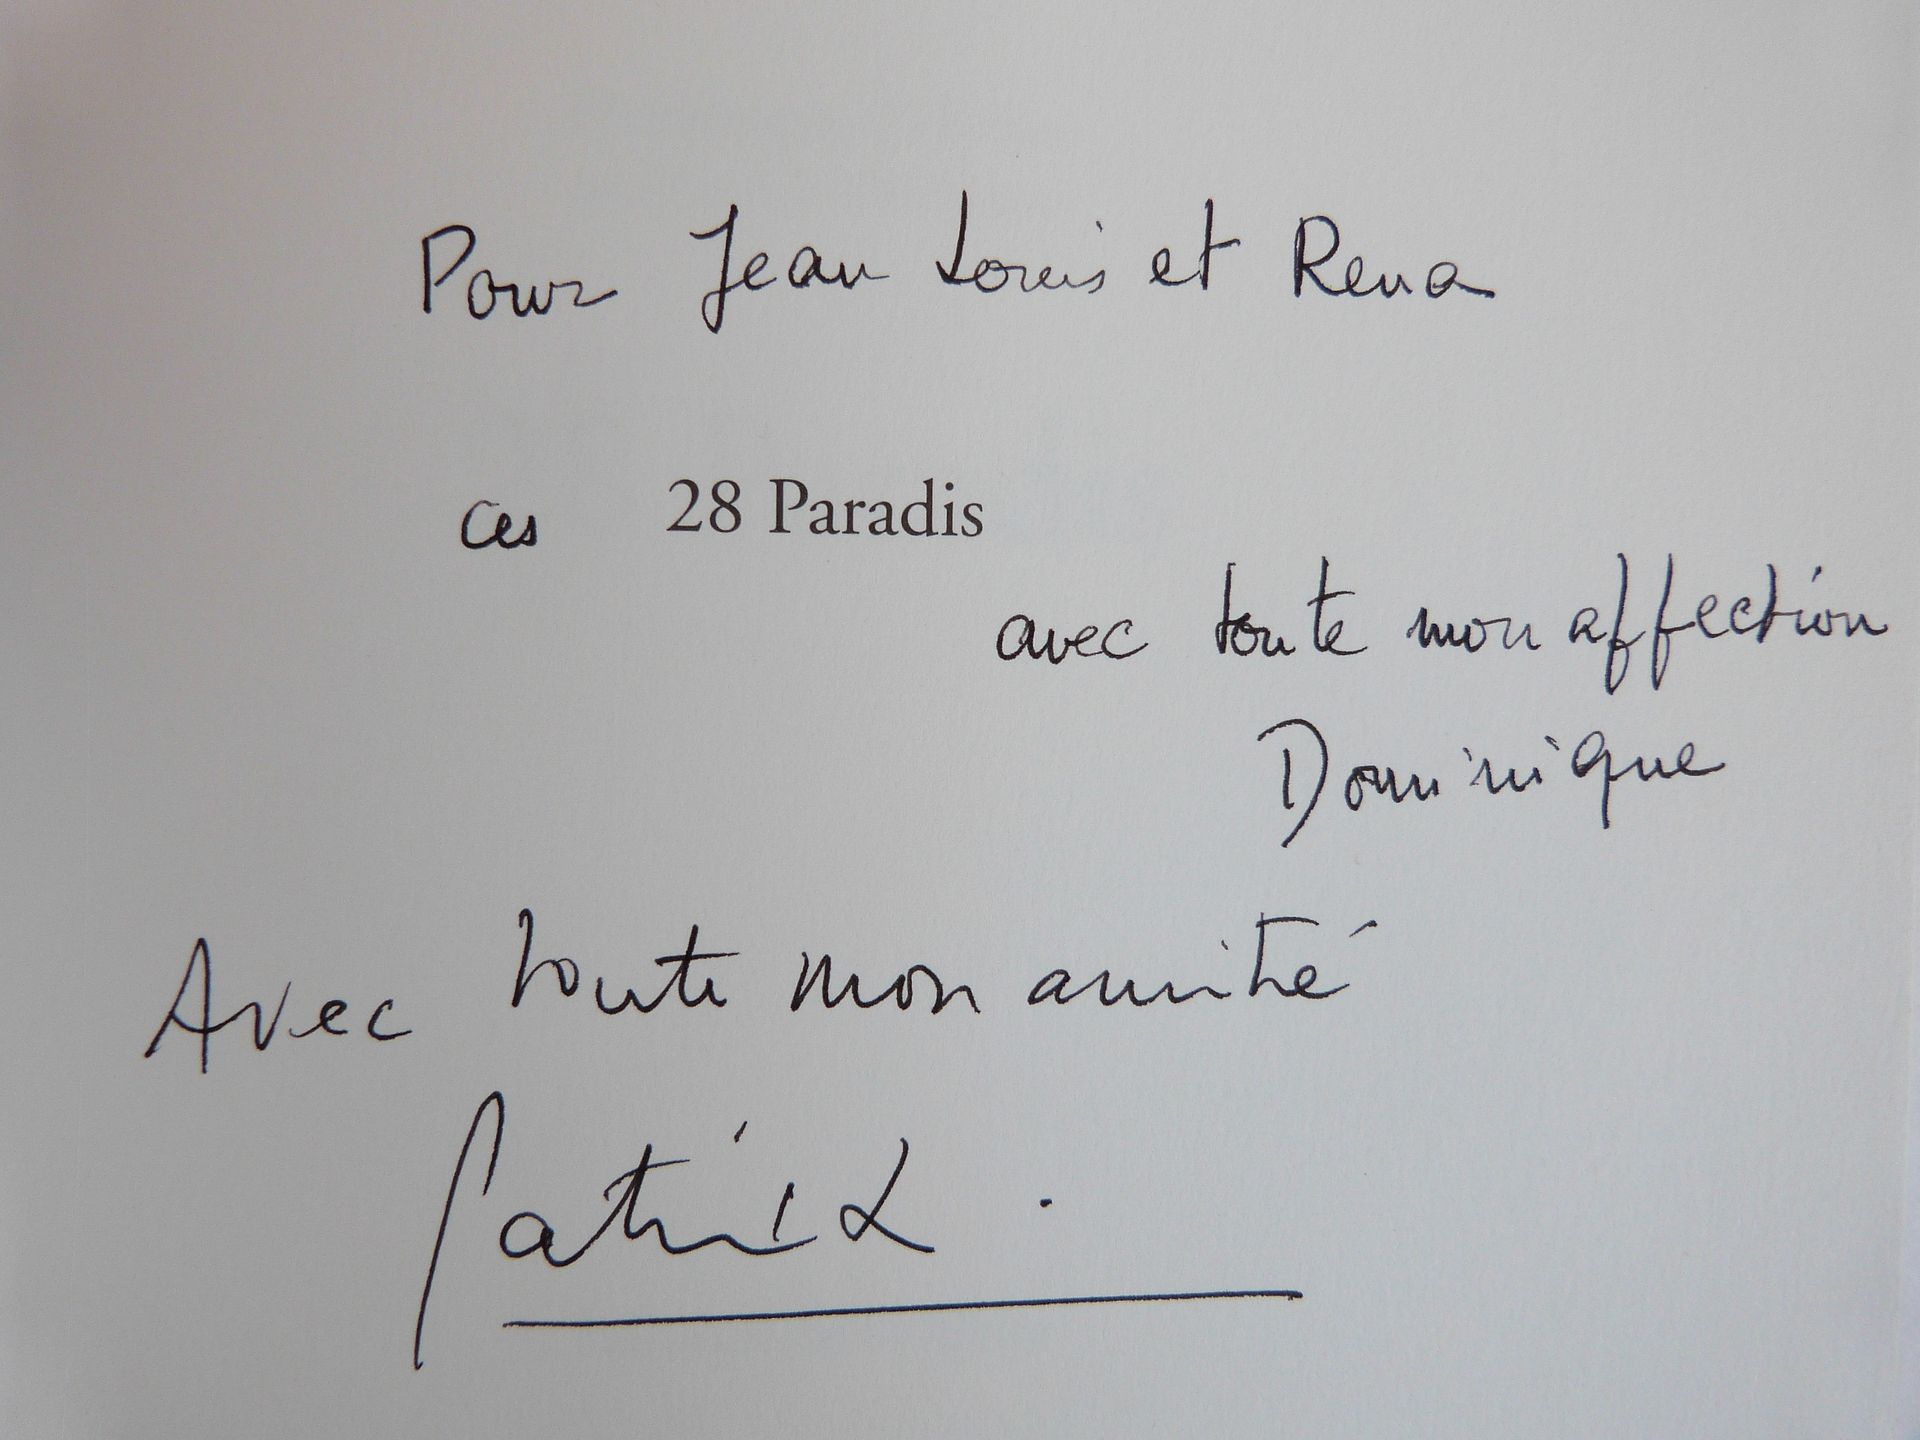 Pour Jean Louis et Rena
ces 28 Paradis
avec toute mon affection
Dominique
Avec toute mon amitié
Patrick.